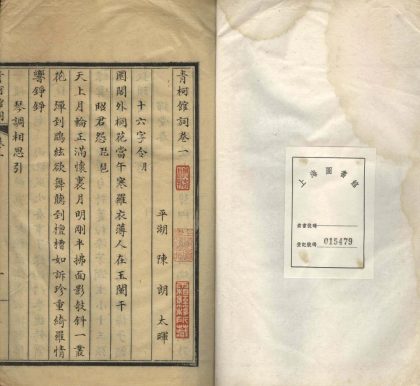 上海圖書館
登記號碼 015479
青柯館詞卷一
平湖 陳朗 太暉
十六字令 月
圓閣外桐花當午寒羅衣薄人在玉闌干
昭君怨 琵琶
天上月輪正滿懷裏月明剛半拂面影敧斜一叢
花 彈到鵾絃欲舞聽到檀槽如訴珍重綺羅情
響錚錚
琴調相思引